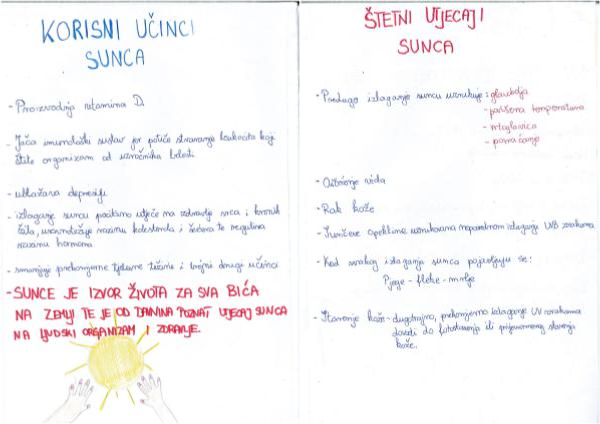 KORISNI UČINCI
SUNCA
- Proizvodnja vitamina D.
- Jača imunološki sustav jer potiče stvaranje leukocita koji
štite organizam od uzročnika bolesti
- ublažava depresiju
- izlaganje suncu pozitivno utječe na zdravlje srca i krvnih
žila, uravnotežuje razinu kolesterola i šećera te regulira
razinu hormona
- smanjuje prekomjerne tjelesne težine i brojni drugi učinci
- SUNCE JE IZVOR ŽIVOTA ZA SVA BIĆA
NA ZEMLJI TE JE OD DAVNINA POZNAT UTJECAJ SUNCA
NA LJUDSKI ORGANIZAM I ZDRAVLJE.
ŠTETNI UTJECAJI
SUNCA
- Predugo izlaganje suncu uzrokuje: glavobolja
- povišena temperatura
- vrtoglavica
- povraćanje
- Oštećenje vida
- Rak kože
- Sunčeve opekline uzrokovana nepravilnom izlaganju UVB zrakama
- Kod svakog izlaganja sunca pojavljuju se:
Pjege - fleke - mrlje
- Starenje kože - dugotrajno, prekomjerno izlaganje UV zrakama
dovodi do fotostarenja ili prijevremenog starenja
kože.